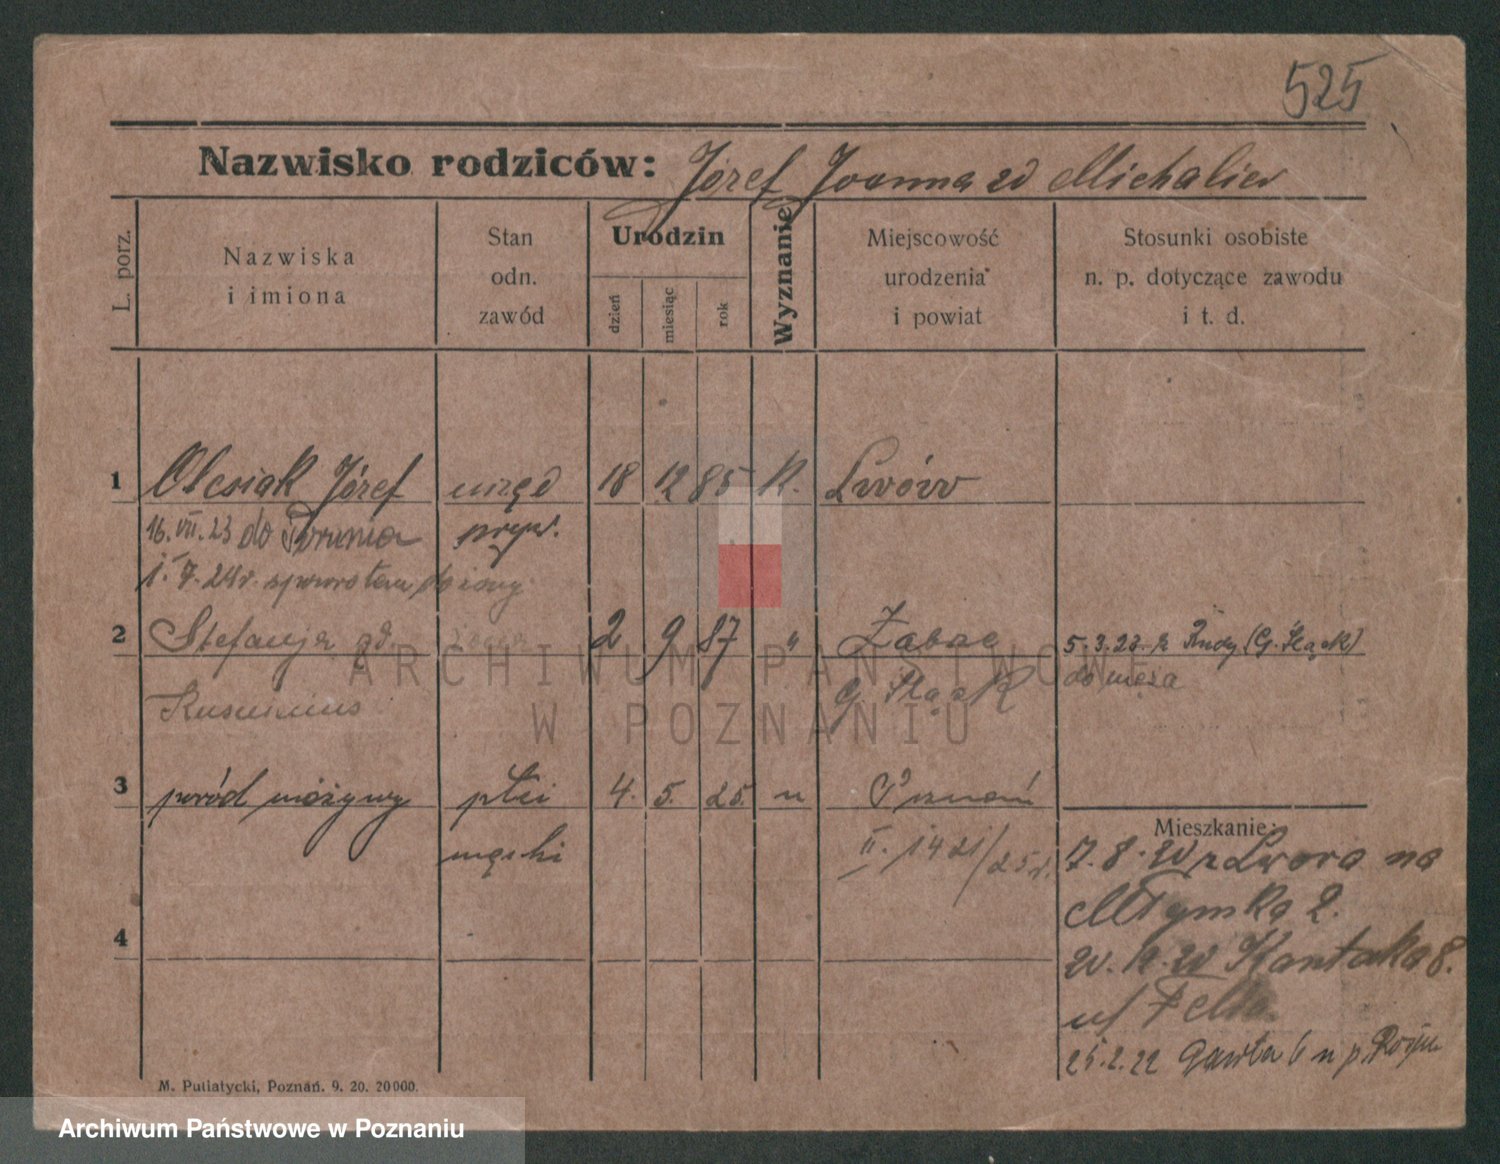 525
Nazwisko rodziców: Józef Joanna zd Michalicz
L. porz.
Nazwiska
i imiona
Stan
odn.
zawód
Urodzin
dzień
miesiąc
rok
Wyznanie
Miejscowość
urodzenia
i powiat
Stosunki osobiste
n. p. dotyczące zawodu
i t. d.
1 Olesiak Józef urzęd 18 12 85 K. Lwów
16. VII. 23 do Torunia pryw.
1. 7. 24 r. spowrotem do żony
2 Stefanja zd. żona 2 9 87 " Zabże 5.3.23. z Rudy (G. Śląsk)
G Śląsk do męża
3 poród nieżywy płci 4. 5. 25. " Poznań
męski II. 1421/25 r.
4
Mieszkanie:
7. 8. 20 z Lwowa na
Młyńska 2.
20. 12. 20 Kantaka 8.
u/
25. 2. 22 6 u p.
M. Putiatycki, Poznań. 9. 20. 20000.
ARCHIWUM PAŃSTWOWE
W POZNANIU
Archiwum Państwowe w Poznaniu